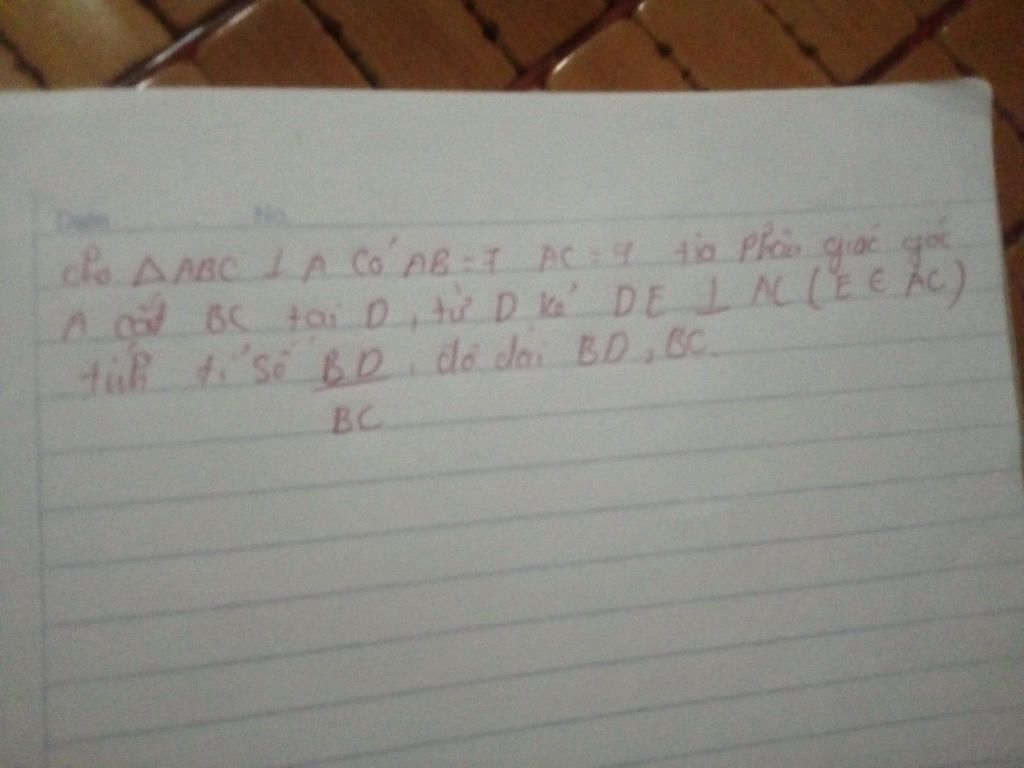 No
cho △ABC ⊥ A có AB = 7 AC = 9 tia phân giác góc
A cắt BC tại D, từ D kẻ DE ⊥ AC (E ∈ AC)
tính tỉ số BD, độ dài BD, BC.
BC